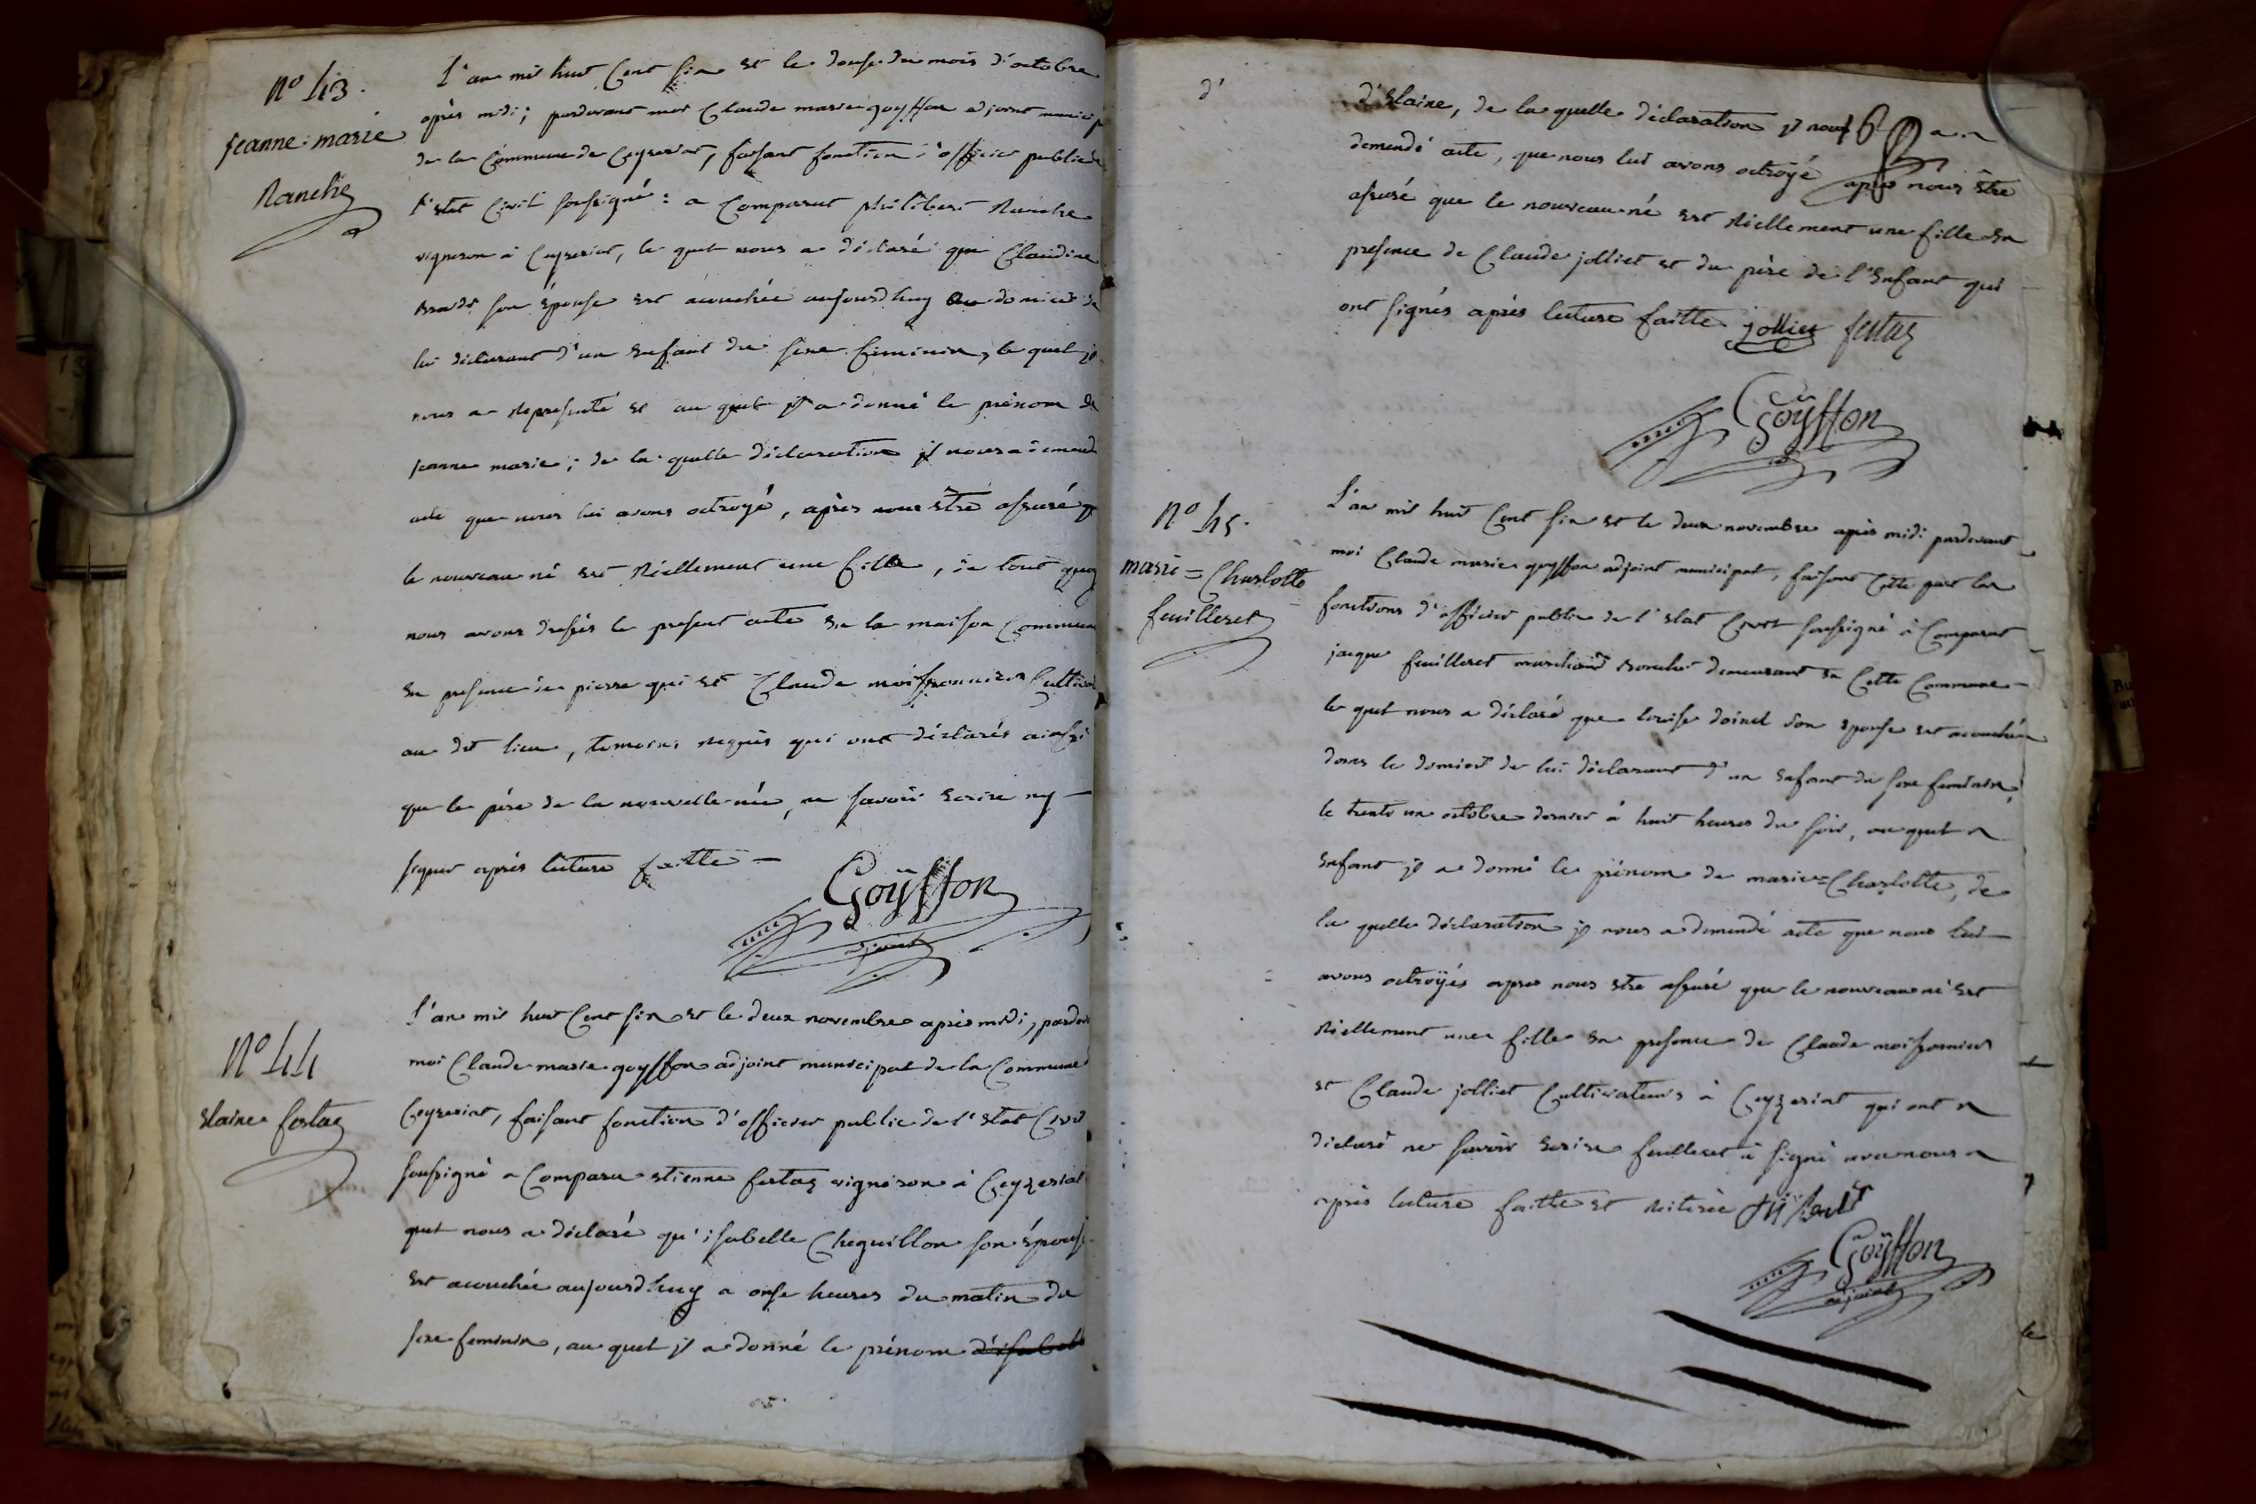 N° 43.
jeanne: marie
Ranche
L'an mil huit Cent six et le douse du mois d'octobre
après midi; pardevant moi Claude marie goÿffon adjoint municip
de la Commune de Ceyzeriat, faisant fonction d'officier public de
l'état Civil soussigné: a Comparut philibert Ranche
vigneron à Ceyzeriat, le quel nous a déclaré que Claudine
son épouse est acouchée aujourdhuy au domicil de
lui déclarant d'un Enfant du sexe féminin, le quel jl
nous a représenté et au quel jl a donné le prénom de
jeanne marie; de la quelle déclaration jl nous a demandé
acte que nous lui avons octroyé, après nous être assuré q
le nouveau né est réellement une fille, de tout quoy
nous avons dressés le présent acte en la maison Commune
en présence de pierre qui et Claude moissonnier Cultiv
au dit lieu, temoins requis qui ont déclarés ainsi
que le père de la nouvelle née, ne savoir Ecrire ny
signer après lecture faitte
Goÿffon
adjoint
N° 44
Elaine festaz
L'an mil huit Cent six et le deux novembre après midi, pardev
moi Claude marie goyffon adjoint municipal de la Commune
Ceyzeriat, faisant fonction d'officier public de l'état Civil
soussigné a Comparu etienne festaz vigneron à Ceyzeriat
quel nous a déclaré qu'isabelle Cheguillon son épouse
est acouchée aujourdhuy a onse heures du matin du
sexe feminin, au quel jl a donné le prénom d'isabel
d'
d'Elaine, de la quelle déclaration jl nous a
demendé acte, que nous lui avons octroyé après nous être
assuré que le nouveau né est réellement une fille en
presence de Claude jolliet et du père de l'Enfant qui
ont signés après lecture faitte jolliet festaz
Goÿffon
N° 45.
marie = Charlotte
feuilleret
L'an mil huit Cent six et le deux novembre après midi pardevant
moi Claude marie goyffon adjoint municipal, faisant Cette part les
fonctions d'officier public de l'état Civil soussigné à Comparut
jacque feuilleret marchand demeurant en Cette Commune
le quel nous a déclaré que louise doinel son épouse est acouchée
dans le domicil de lui déclarant d'un Enfant du sexe feminin,
le trente un octobre dernier à huit heures du soir, au quel
Enfant jl a donné le prénom de marie=Charlotte, de
la quelle déclaration jl nous a demendé acte que nous lui
avons octroÿés apres nous être assuré que le nouveau né est
réellement une fille en presence de Claude moissonnier
et Claude jolliet Cultivateurs à Ceyzeriat qui ont
déclaré ne savoir Ecrire feuilleret à signé avec nous
après lecture faitte et réiterée
Goÿffon
adjoint